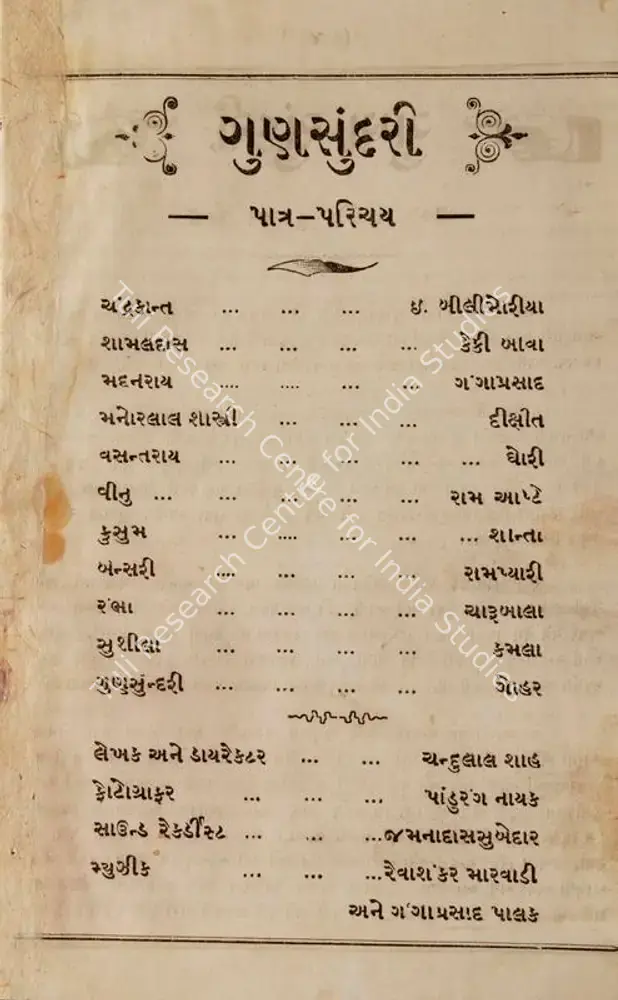 ગુણસુંદરી
— પાત્ર–પરિચય —
ચંદ્રકાન્ત ... ... ... ઇ. બીલીમોરીયા
શામલદાસ ... ... ... ... કેકી બાવા
મદનરાય .... .... ... ... ગંગાપ્રસાદ
મનોરલાલ શાસ્ત્રી ... ... ... દીક્ષીત
વસન્તરાય ... ... ... ... ... ઘોરી
વીનુ ... ... ... ... ... રામ આપ્ટે
કુસુમ ... .... ... ... ... શાન્તા
બન્સરી .... ... ... ... રામપ્યારી
રંભા ... ... ... ... ચારૂબાલા
સુશીલા ... ... ... ... કમલા
ગુણસુંન્દરી ... ... ... ... ગોહર
લેખક અને ડાયરેક્ટર ... ... ચન્દુલાલ શાહ
ફોટોગ્રાફર ... ... ... પાંડુરંગ નાયક
સાઉન્ડ રેકર્ડીસ્ટ ... ... ...જમનાદાસસુબેદાર
મ્યુઝીક ... ... ...રેવાશંકર મારવાડી
અને ગંગાપ્રસાદ પાલક
Tuli Research Centre for India Studies
Tuli Research Centre for India Studies